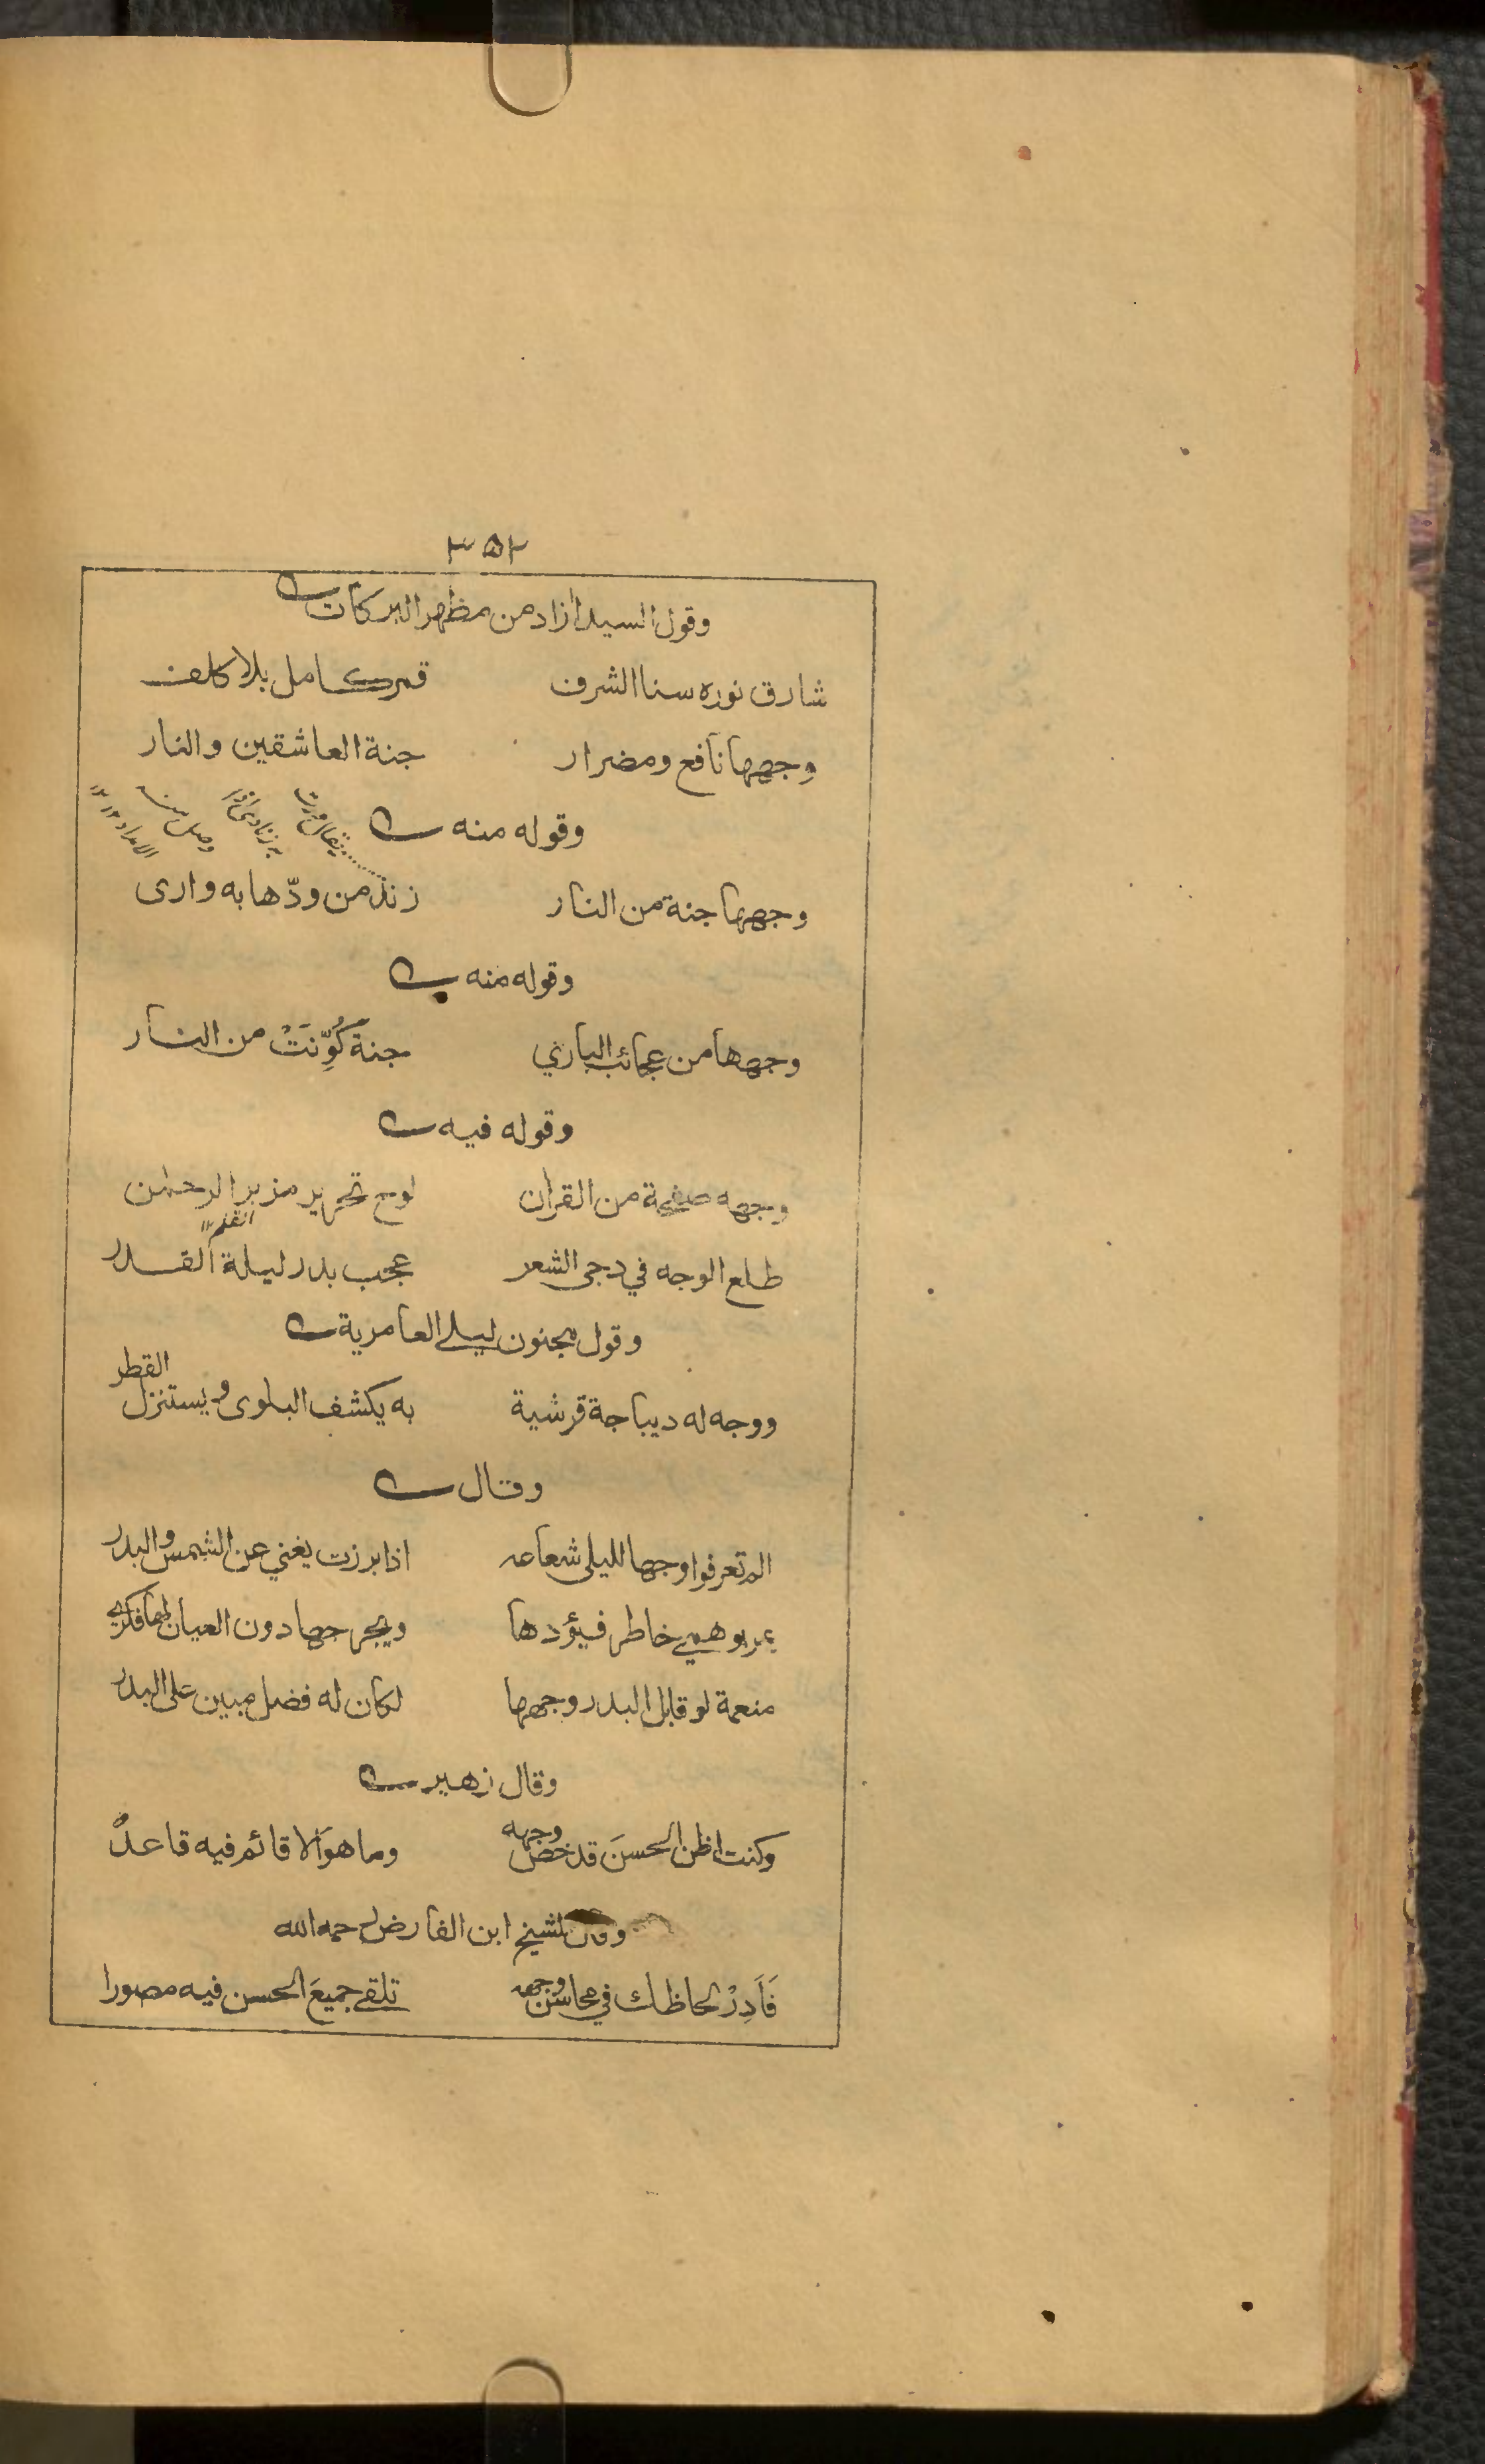 ٣٥٢
وقول السيد ازاد من مظهر البركات
شارق نوره سنا الشرف قمر كامل بلا كلف
وجهها نافع ومضرار جنة العاشقين والنار
وقوله منه
وجهها جنة من النار زند من ودّها به وارى
وقوله منه
وجهها من عجائب الباري جنة كُوِّنَتْ من النار
وقوله فيه
وجهه صفحة من القران لوح تحرير مزبر الرحمٰن
القلم ١٢
طلع الوجه في دجى الشعر عجب بدر ليلة القدر
وقول مجنون ليلے العامرية
ووجه له ديباجة قرشية به يكشف البلوى ويستنزل القطر
وقال
الم تعرفوا وجها لليلى شعاعه اذا برزت يغني عن الشمس والبدر
يمر بوهمے خاطر فيؤدها ويجرحها دون العيان لها فكرے
منعمة لو قابل البدر وجهها لكان له فضل مبين على البدر
وقال زهير
وكنت اظن الحسنَ قد خص وجهه وما هو الا قائم فيه قاعدُ
وقال الشيخ ابن الفارض رحمه الله
فَاَدِرْ لحاظك في محاسن وجهه تلقے جميعَ الحسن فيه مصورا